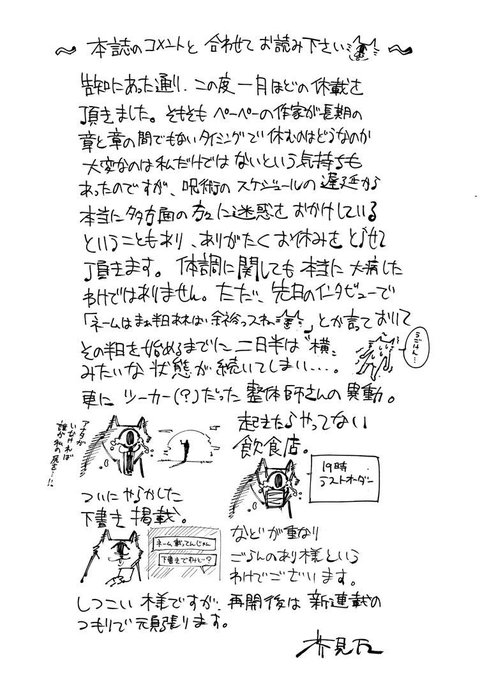 ～ 本誌のコメントと合わせてお読み下さい ～
告知にあった通り、この度一月ほどの休載を
頂きました。そもそもペーペーの作家が長期の
章と章の間でもないタイミングで休むのはどうなのか
大変なのは私だけではないという気持ちも
あったのですが、呪術のスケジュールの遅延から
本当に多方面の方々に迷惑をおかけしている
ということもあり、ありがたくお休みをとらせて
頂きます。体調に関しても本当に大病した
わけではありません。ただ、先日のインタビューで
「ネームはまぁ半日あれば余裕っスね」とか言っておいて
その半日を始めるまでに二日半は“横”
みたいな状態が続いてしまい…。
うごけん…
更にツーカー(?)だった整体師さんの異動。
アナタが
いなければ
誰が私の肩を…!!
起きたらやってない
飲食店。
19時
ラストオーダー
ついにやらかした
下書き掲載。
ネーム載ってんじゃん
下書きでわ?
などが重なり
ごらんのあり様という
わけでございます。
しつこい様ですが、再開後は新連載の
つもりで頑張ります。
芥見下々